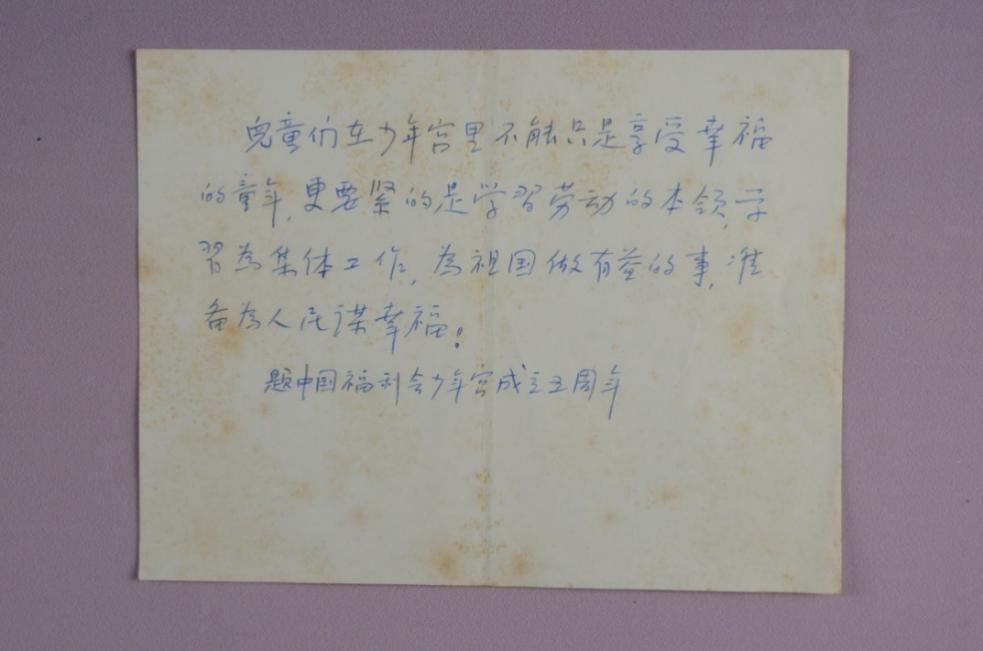 兒童们在少年宫里不能只是享受幸福
的童年,更要紧的是学習劳动的本领,学
習為集体工作,為祖国做有益的事,准
备為人民谋幸福!
题中国福利会少年宫成立五周年